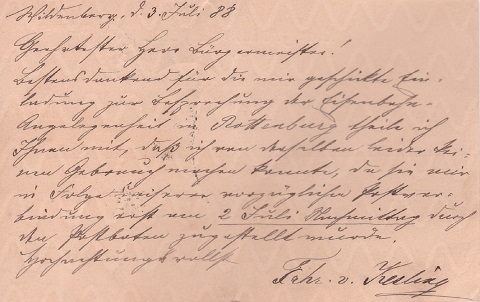 Wildenberg, d. 3. Juli 88
Geehrtester Herr Bürgermeister!
Bestens dankend für die mir geschickte Ein-
ladung zur Besprechung der Eisenbahn-
Angelegenheit in Rottenburg theile ich
Ihnen mit, daß ich von derselben leider kei-
nen Gebrauch machen konnte, da sie mir
in Folge unserer vorzüglichen Postver-
bindung erst am 2 Juli Nachmittag durch
den Postboten zugestellt wurde.
Hochachtungsvollst
Frhr. v. Kesling